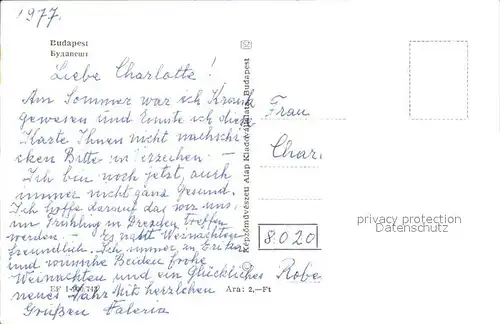 1977.
Budapest
Будапешт
Liebe Charlotte!
Am Sommer war ich Krank
gewesen und konnte ich diese
Karte Ihnen nicht nachschi-
cken Bitte um Verzeihen. —
Ich bin noch jetzt, auch
immer nicht ganz Gesund.
Ich hoffe darauf das wir uns,
im Frühling in Dresden treffen
werden — Es naht Weinachten
freundlich. Ich immer an
und wünsche Beiden frohe
Weinachten und ein Glückliches
neues Jahr Mit herzlichen
Grüßen Valeria
EF
Ára: 2,—Ft
Képzőművészeti Alap Kiadóvállalata, Budapest
Frau
Char
8020
Robe
privacy protection
Datenschutz